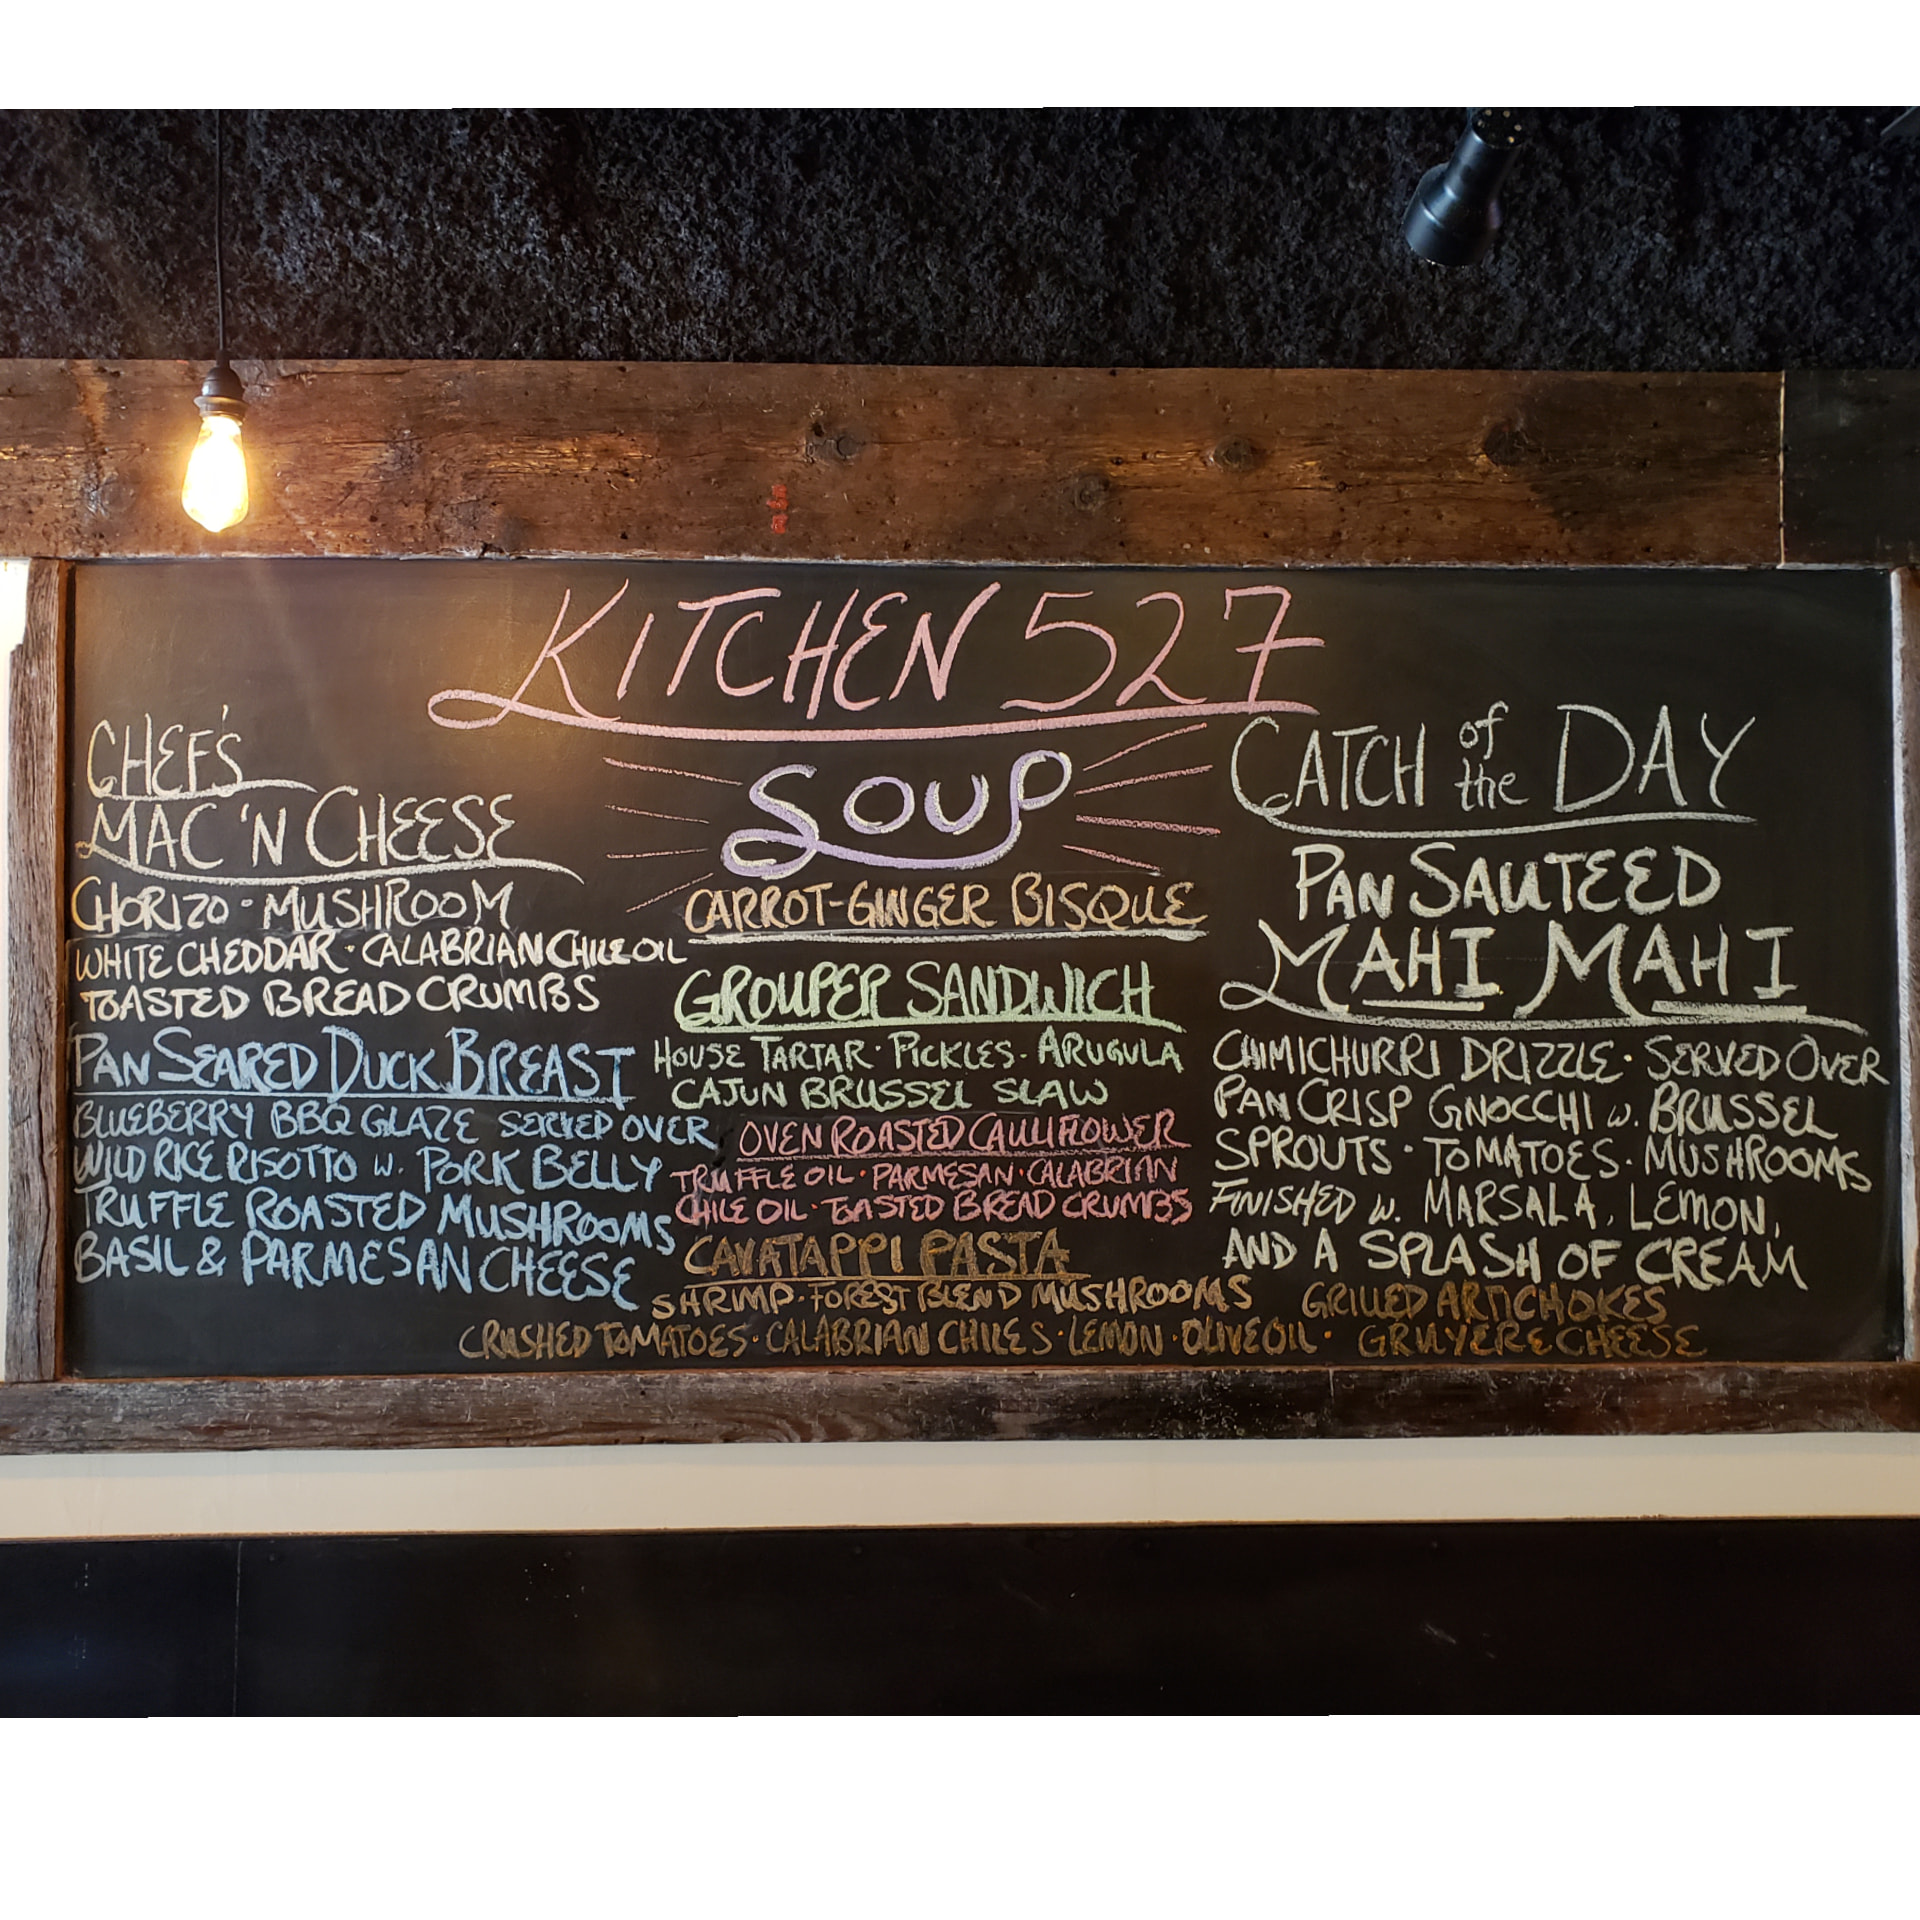 KITCHEN 527
CHEF'S
MAC 'N CHEESE
CHORIZO - MUSHROOM
WHITE CHEDDAR · CALABRIAN CHILE OIL
TOASTED BREAD CRUMBS
PAN SEARED DUCK BREAST
BLUEBERRY BBQ GLAZE SERVED OVER
WILD RICE RISOTTO w. PORK BELLY
TRUFFLE ROASTED MUSHROOMS
BASIL & PARMESAN CHEESE
SOUP
CARROT-GINGER BISQUE
GROUPER SANDWICH
HOUSE TARTAR · PICKLES - ARUGULA
CAJUN BRUSSEL SLAW
OVEN ROASTED CAULIFLOWER
TRUFFLE OIL · PARMESAN · CALABRIAN
CHILE OIL · TOASTED BREAD CRUMBS
CAVATAPPI PASTA
SHRIMP · FOREST BLEND MUSHROOMS GRILLED ARTICHOKES
CRUSHED TOMATOES · CALABRIAN CHILES · LEMON · OLIVE OIL · GRUYERE CHEESE
CATCH of the DAY
PAN SAUTEED
MAHI MAHI
CHIMICHURRI DRIZZLE · SERVED OVER
PAN CRISP GNOCCHI w. BRUSSEL
SPROUTS · TOMATOES · MUSHROOMS
FINISHED w. MARSALA, LEMON,
AND A SPLASH OF CREAM